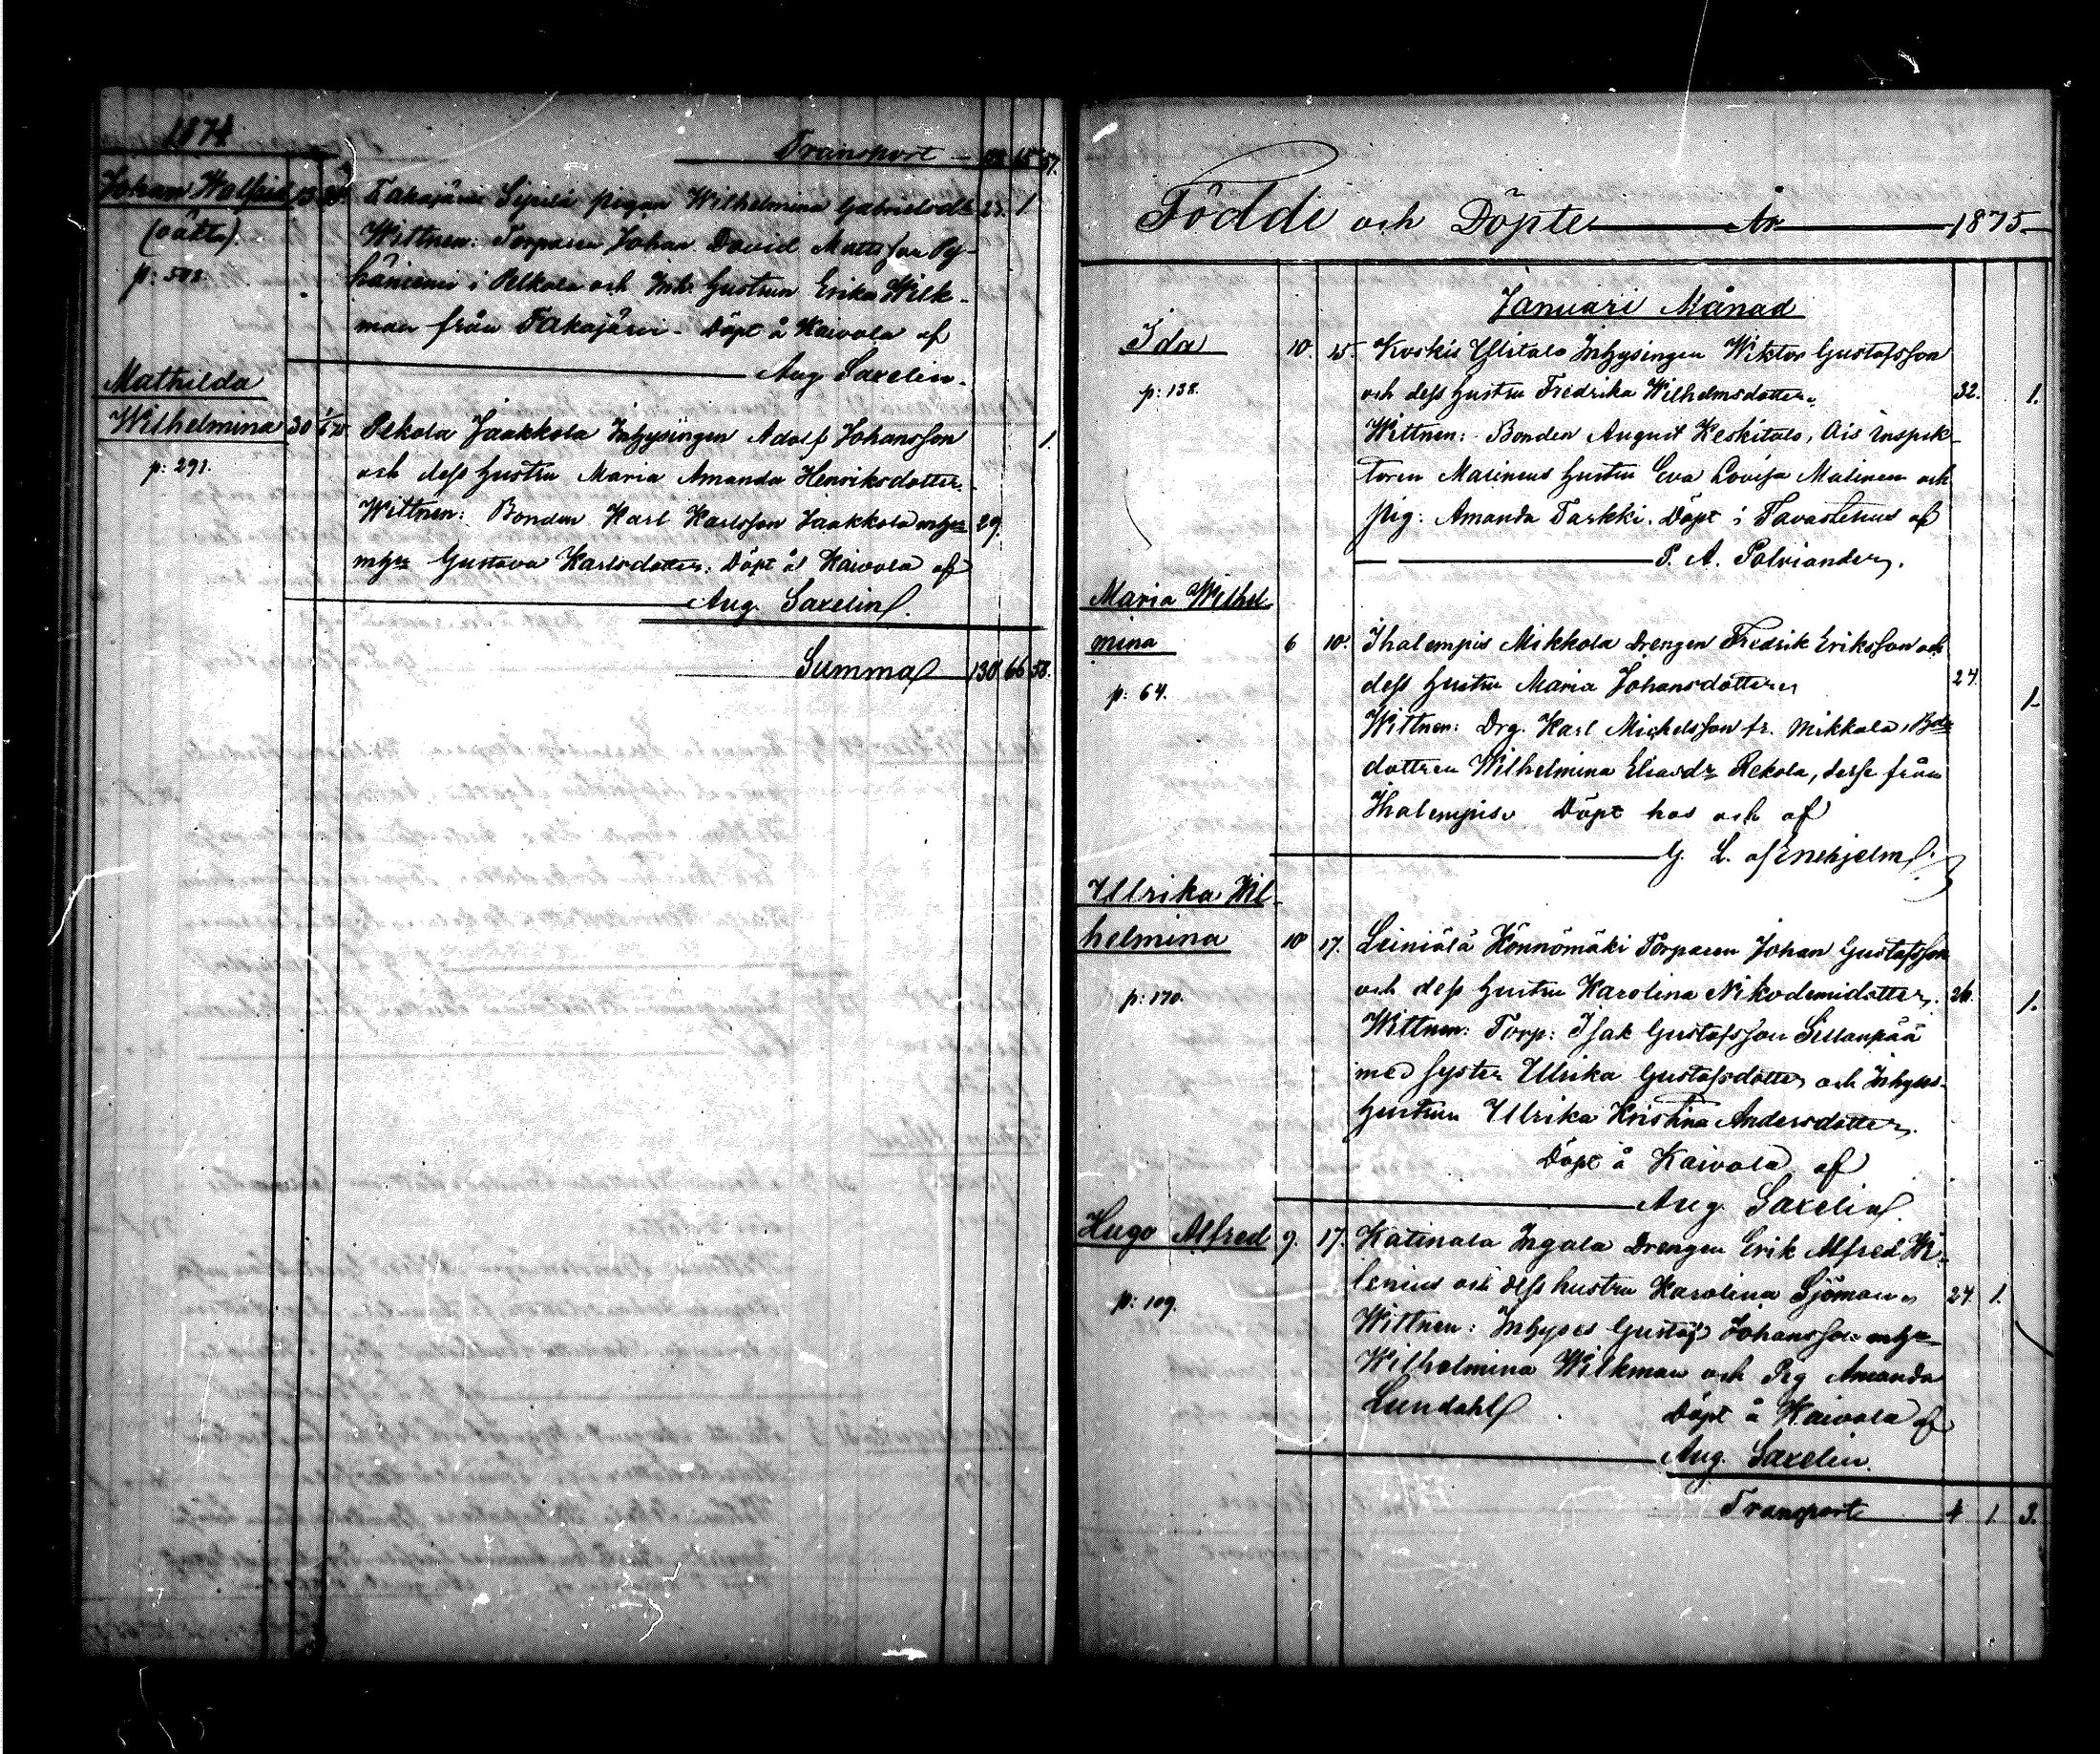 1874
Transport 65 57.
Johan Walfrid 13
(oäkta)
p: 508.
Takajärvi Sipilä pigan Wilhelmina Gabrielsdr 1
Wittnen: Torparen Johan David Mattsson Py-
häniemi i Pelkola och Inh. Gustrun Erika Wilk-
man från Takajärvi. Döpt å Kaivola af
Aug. Saxelin.
Mathilda
Wilhelmina 30
p: 291.
Pekola Jaakkola Inhysingen Adolf Johansson 1.
och dess hustru Maria Amanda Henriksdotter.
Wittnen: Bonden Karl Karlsson Jaakkola mhu 29.
mhu Gustava Karlsdotter. Döpt å Kaivola af
Aug. Saxelin.
Summa 130 66 58.
Födde och Döpte År 1875.
Januari Månad
Ida 10. 15. Koskis Ylitalo Inhysingen Wiktor Gustafsson
p: 138. och dess hustru Fredrika Wilhelmsdotter. 32. 1.
Wittnen: Bonden August Keskitalo, Ais Inspek-
toren Malinens hustru Eva Lovisa Malinen och
pig: Amanda Tarkki. Döpt i Tavastehus af
P. A. Polviander.
Maria Wilhel-
mina 6 10. Ihalempis Mikkola Drengen Fredrik Eriksson och
p: 64. dess hustru Maria Johansdotter 24. 1.
Wittnen: Drg. Karl Michelsson fr. Mikkola, Bde
dottren Wilhelmina Eliasdr Rekola, desse från
Ihalempis. Döpt hos och af
G. L. af Enehjelm.
Ulrika Wil-
helmina 10 17. Leiniälä Hönnömäki Torparen Johan Gustafsson
p: 170. och dess hustru Karolina Nikodemidotter. 26. 1.
Wittnen: Torp: Isak Gustafsson Sillanpää
med syster Ulrika Gustafsdotter och Inhyses-
hustrun Ulrika Kristina Andersdotter.
Döpt å Kaivola af
Aug. Saxelin.
Hugo Alfred 9. 17. Katinala Ingala Drengen Erik Alfred Wi-
p: 109. lenius och dess hustru Karolina Sjöman 27. 1.
Wittnen: Inhyses Gustaf Johansson mhu
Wilhelmina Wilkman och Pig Amanda
Lundahl. Döpt å Kaivola af
Aug. Saxelin.
Transport 4 1. 3.